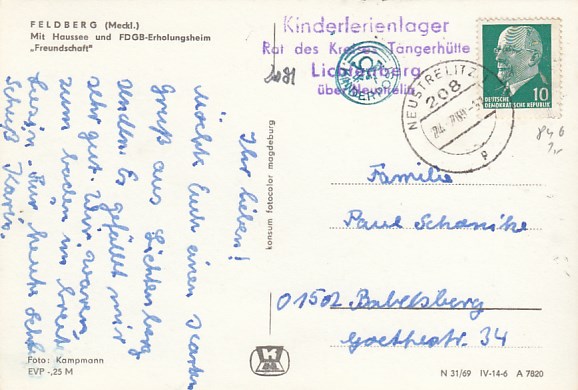 FELDBERG (Meckl.)
Mit Haussee und FDGB-Erholungsheim
„Freundschaft"
Kinderferienlager
Rat des Kreises Tangerhütte
Lichtenberg
über Neustrelitz
2081
NEUSTRELITZ 1
208
DEUTSCHE
DEMOKRATISCHE REPUBLIK
10
Ihr lieben!
Möchte Euch einen
Gruß aus Lichtenberg
senden. Es gefällt mir
sehr gut. Wir waren
zum baden im
Für heute
Karin.
konsum fotocolor magdeburg
Familie
Paul Schanike
01502 Babelsberg
Goethestr. 34
Foto: Kampmann
EVP -,25 M
N 31/69 IV-14-6 A 7820